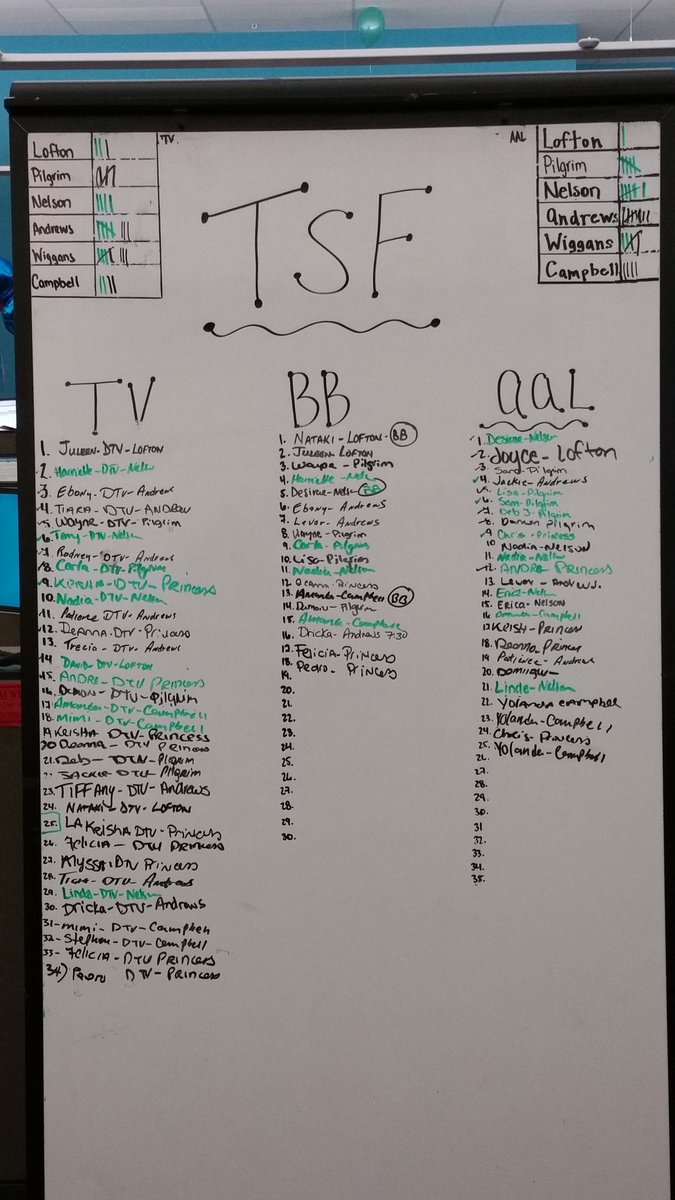 TV
Lofton
Pilgrim
Nelson
Andrews
Wiggans
Campbell
AAL
Lofton
Pilgrim
Nelson
Andrews
Wiggans
Campbell
TSF
TV
1. Juleen-DTV-Lofton
2. Harriette-DTV-Nels
3. Ebony-DTV-Andrews
4. TIARA-DTV-ANDREW
5. Wayne-DTV-Pilgrim
6. Tony-DTV-Nelson
7. Rodney-DTV-Andrews
8. Carla-DTV-Pilgrim
9. KEISHA-DTV-PRINCESS
10. Nadia-DTV-Nelson
11. Patience DTV-Andrews
12. DEANNA-DTV-Princess
13. Trecia-DTV-Andrews
14. David-DTV-LOFTON
15. ANDRE-DTV PRINCESS
16. Damon-DTV-Pilgrim
17. Amanda-DTV-Campbell
18. Mimi-DTV-Campbell
19. KEISHA DTV-PRINCESS
20. Deanna-DTV PRINCESS
21. Deb-DTV-Pilgrim
22. JACKIE-DTV-Pilgrim
23. TIFFANY-DTV-Andrews
24. NATAKI-DTV-LOFTON
25. LAKeisha DTV-Princess
26. FELICIA-DTV PRINCESS
27. Alyssa-DTV Princess
28. DTV-Andrews
29. Linda-DTV-Nelson
30. Dricka-DTV-Andrews
31-mimi-DTV-Campbell
32-Stephon-DTV-Campbell
33-FELICIA-DTV PRINCESS
34) Pedro DTV-PRINCESS
BB
1. NATAKI-LOFTON-BB
2. JULEEN LOFTON
3. Wayne-Pilgrim
4. Harriette-Nels
5. Desirae-Nelson BB
6. Ebony-Andrews
7. Lever-Andrews
8. Wayne-Pilgrim
9. Carla-Pilgrim
10. Lisa-Pilgrim
11. Nadia-Nelson
12. Deanna-PRINCESS
13. Amanda-Campbell BB
14. Damon-Pilgrim
15. Amanda-Campbell
16. Dricka-Andrews 7:30
17. FELICIA-PRINCESS
18. Pedro-PRINCESS
19.
20.
21.
22.
23.
24.
25.
26.
27.
28.
29.
30.
aaL
1. Desirae-Nelson
2. Joyce-Lofton
3. Pilgrim
4. Jackie-Andrews
5. Lisa-Pilgrim
6. Sam-Pilgrim
7. Deb J-Pilgrim
8. Damon Pilgrim
9. Chris-Princess
10. Nadia-NELSON
11. Nadia-Nelson
12. ANDRE PRINCESS
13. Lever-Andrews.
14. Erica-Nels
15. Erica-Nelson
16. Amanda-Campbell
17. KEISH-PRINCESS
18. Deanna Princess
19. Patience-Andrew
20. Dominique-
21. Linda-Nelson
22. Yolanda Campbell
23. Yolanda-Campbell
24. Chris-Princess
25. Yolanda-Campbell
26.
27.
28.
29.
30.
31
32.
33.
34.
35.